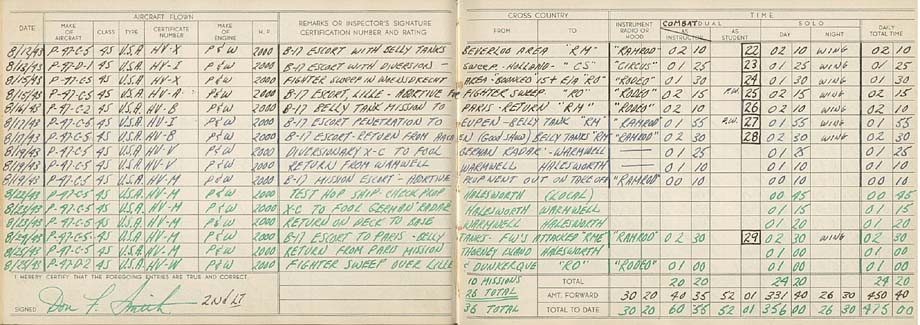 AIRCRAFT FLOWN
DATE MAKE OF AIRCRAFT CLASS TYPE CERTIFICATE NUMBER MAKE OF ENGINE H. P. REMARKS OR INSPECTOR'S SIGNATURE CERTIFICATION NUMBER AND RATING
CROSS COUNTRY TIME
FROM TO INSTRUMENT RADIO OR HOOD COMBAT DUAL AS INSTRUCTOR AS STUDENT SOLO DAY NIGHT DAILY TOTAL
8/12/43 P-47-C-5 4S U.S.A. HV-X P & W 2000 B-17 ESCORT WITH BELLY TANKS BEVERLOO AREA "RM" "RAMROD" 02 10 22 02 10 WING 02 10
P-47-D-1 4S U.S.A. HV-I P & W 2000 B-17 ESCORT WITH DIVERSION - SWEEP - HOLLAND - "CS" "CIRCUS" 01 25 23 01 25 WING 01 25
8/15/43 P-47-C-5 4S U.S.A. HV-X P & W 2000 FIGHTER SWEEP IN WOENSDRECHT AREA - BOUNCED "RO" "RODEO" 01 30 24 01 30 WING 01 30
8/15/43 P-47-C-5 4S U.S.A. HV-A P & W 2000 B-17 ESCORT, LILLE - ABORTIVE FIGHTER SWEEP "RO" "RODEO" 02 15 25 02 15 WING 02 15
8/16/43 P-47-C-2 4S U.S.A. HV-B P & W 2000 B-17 BELLY TANK MISSION TO PARIS - RETURN "RM" 02 10 26 02 10 WING 02 10
8/17/43 P-47-C-5 4S U.S.A. HV-I P & W 2000 B-17 ESCORT PENETRATION TO EUPEN - BELLY TANK "RM" "RAMROD" 01 55 27 01 55 WING 01 55
8/17/43 P-47-C-5 4S U.S.A. HV-B P & W 2000 B-17 ESCORT - RETURN FROM (GOOD SHOW) BELLY TANKS "RM" "RAMROD" 02 30 28 02 30 WING 02 30
8/19/43 P-47-C-5 4S U.S.A. HV-V P & W 2000 DIVERSIONARY X-C TO FOOL GERMAN RADAR - WARMWELL 01 25 01 25 01 25
8/19/43 P-47-C-5 4S U.S.A. HV-V P & W 2000 RETURN FROM WARMWELL WARMWELL HALESWORTH 01 10 01 10 01 10
8/19/43 P-47-C-5 4S U.S.A. HV-M P & W 2000 B-17 MISSION ESCORT - ABORTIVE PROP WENT OUT ON TAKE OFF "RAMROD" 00 10 00 10 00 10
8/22/43 P-47-C-5 4S U.S.A. HV-M P & W 2000 TEST HOP SHIP. CHECK PROP HALESWORTH (LOCAL) 00 45 00 45
P-47-C-5 4S U.S.A. HV-M P & W 2000 X-C TO FOOL GERMAN RADAR HALESWORTH WARMWELL 01 15 01 15
P-47-C-5 4S U.S.A. HV-M P & W 2000 RETURN ON DECK TO BASE WARMWELL HALESWORTH 01 20 01 20
P-47-C-5 4S U.S.A. HV-M P & W 2000 B-17 ESCORT TO PARIS - BELLY TANKS - FW'S ATTACKED "RM" "RAMROD" 02 30 29 02 30 WING 02 30
P-47-C-5 4S U.S.A. HV-M P & W 2000 RETURN FROM PARIS MISSION THORNEY ISLAND HALESWORTH 01 00 01 00
P-47-D-2 4S U.S.A. P & W 2000 FIGHTER SWEEP OVER LILLE & DUNKERQUE "RO" "RODEO" 01 00 01 00 01 00
I HEREBY CERTIFY THAT THE FOREGOING ENTRIES ARE TRUE AND CORRECT.
SIGNED Don P. Smith 2nd LT
10 MISSIONS TOTAL 20 20 24 20 24 20
26 TOTAL AMT. FORWARD 30 20 40 35 52 01 331 40 26 30 450 40
36 TOTAL TOTAL TO DATE 30 20 60 55 52 01 356 00 26 30 475 00